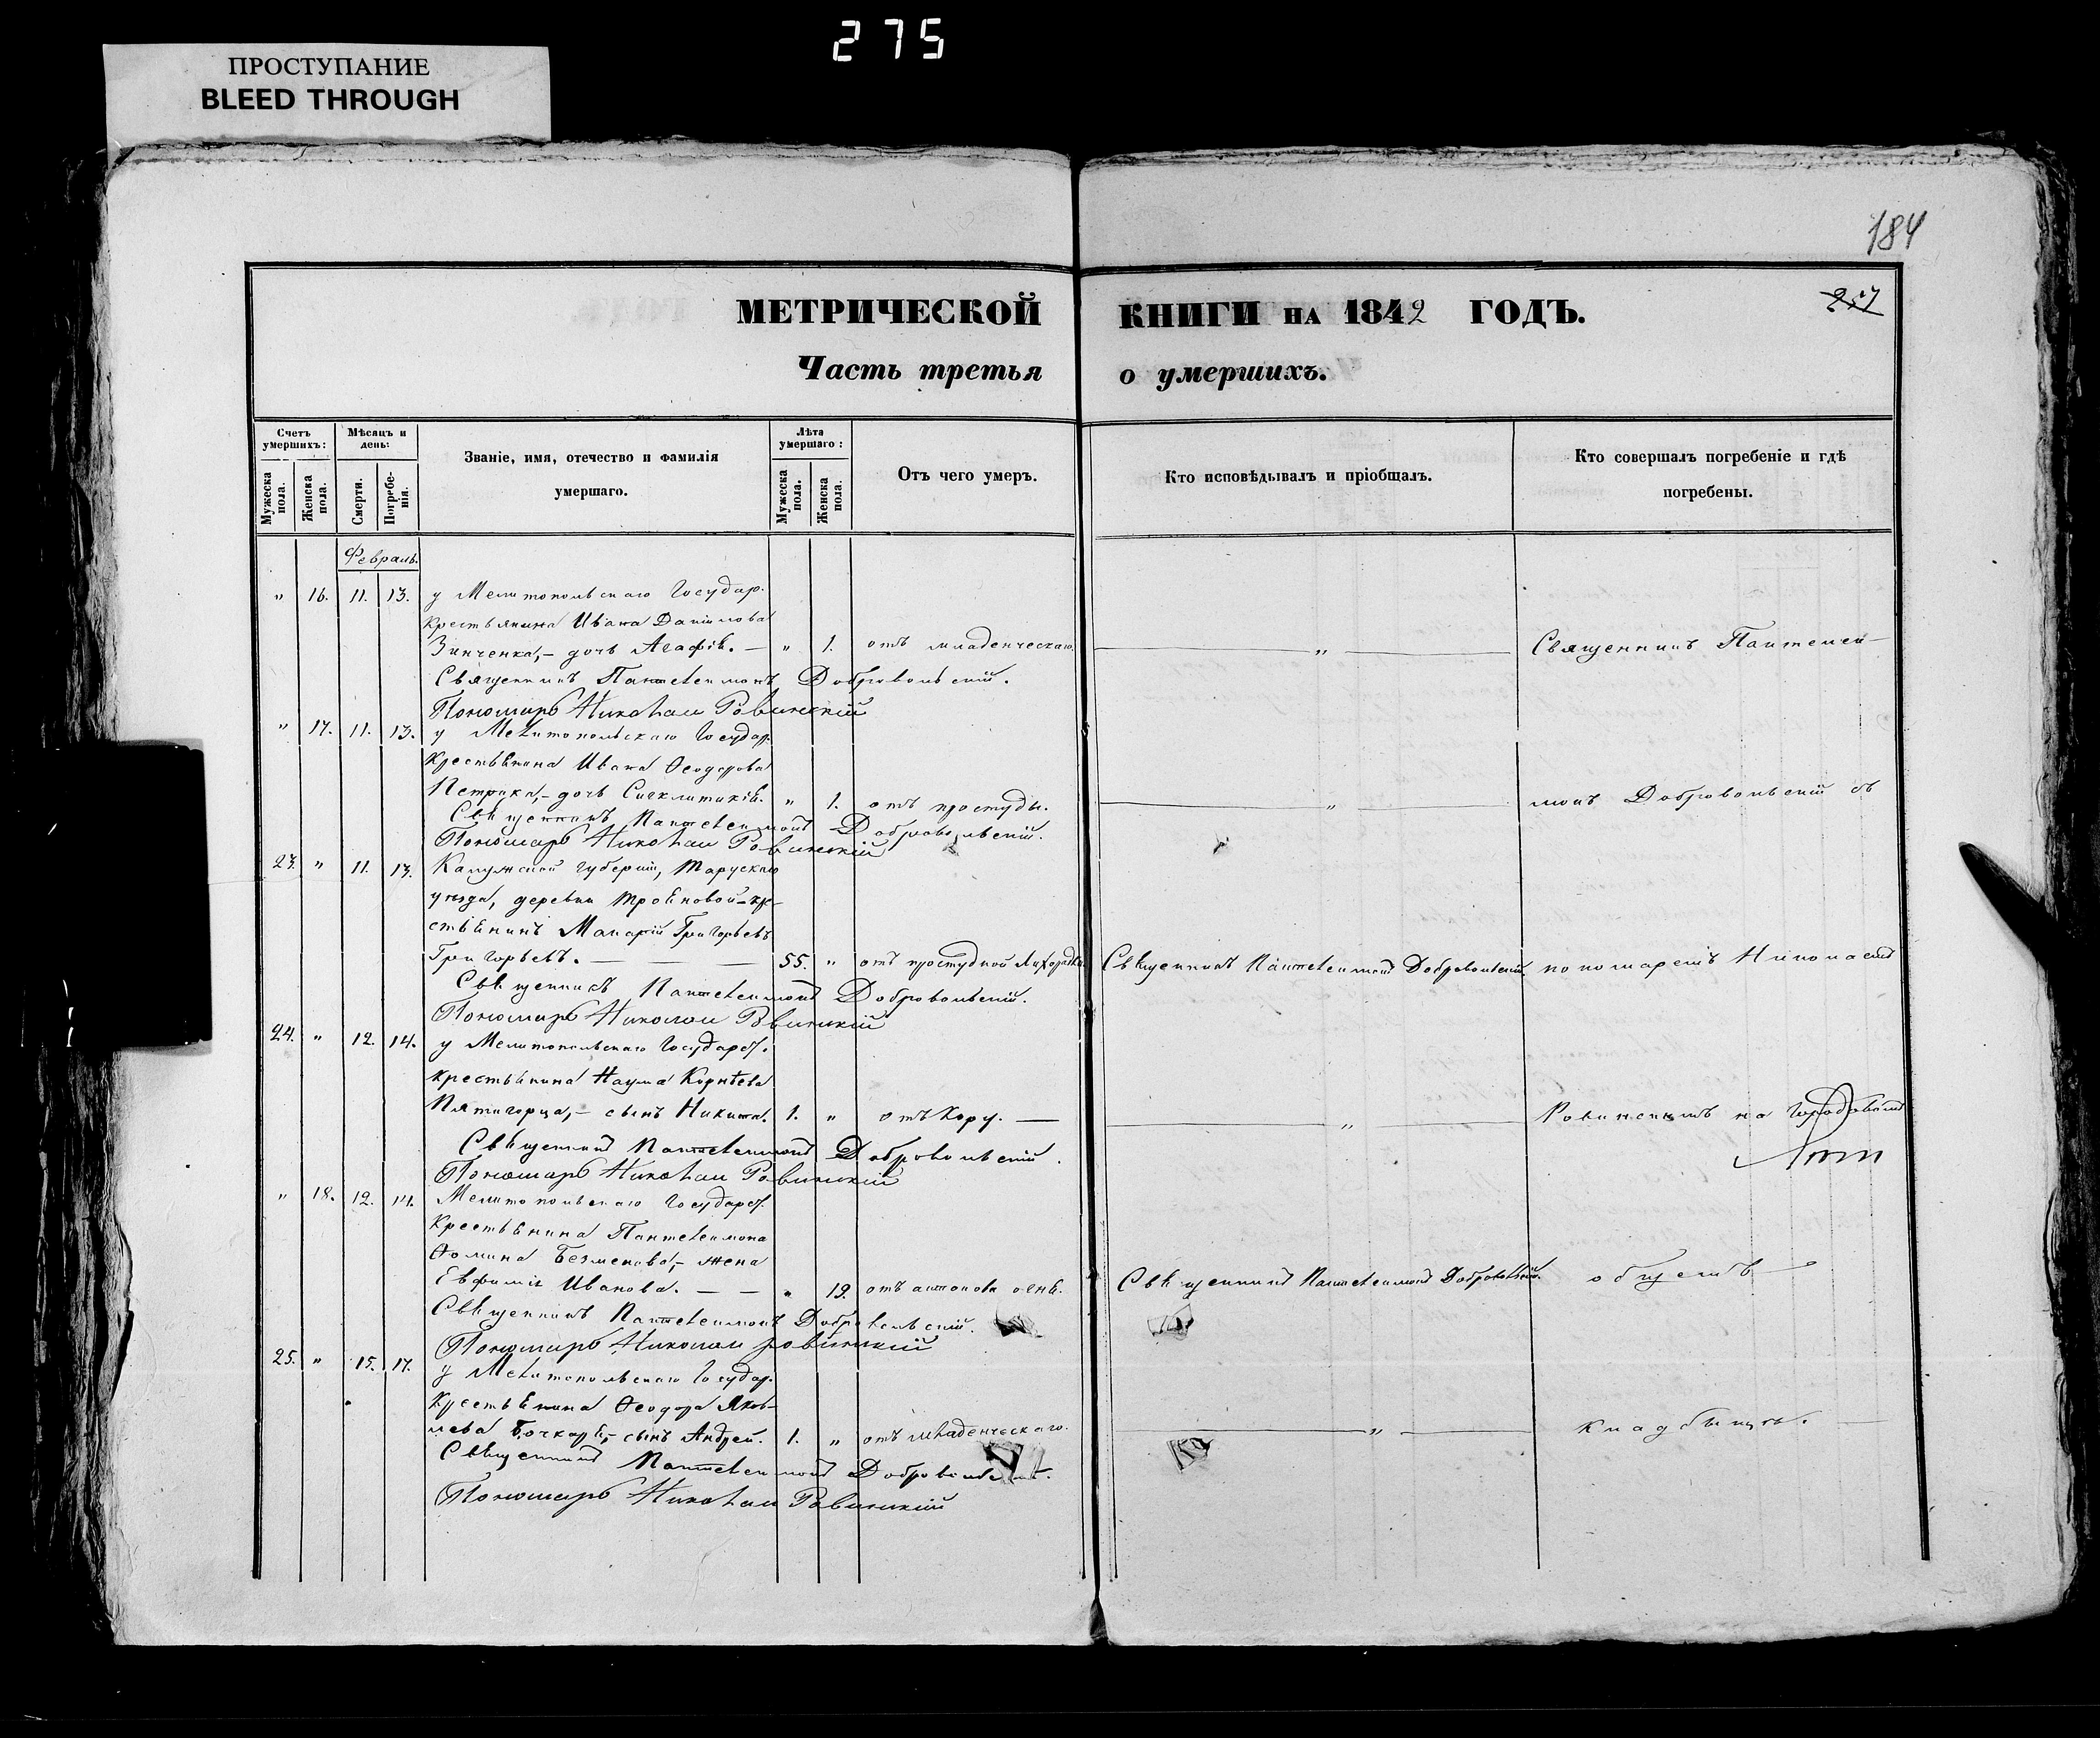 275
ПРОСТУПАНИЕ
BLEED THROUGH
184
МЕТРИЧЕСКОЙ КНИГИ НА 1842 ГОДЪ.
257
Часть третья о умершихъ.
Счетъ умершихъ:
Мужеска пола.
Женска пола.
Мѣсяцъ и день:
Смерти.
Погребенія.
Званіе, имя, отечество и фамилія
умершаго.
Лѣта умершаго:
Мужеска пола.
Женска пола.
Отъ чего умеръ.
Кто исповѣдывалъ и пріобщалъ.
Кто совершалъ погребеніе и гдѣ
погребены.
Февраль.
" 16. 11. 13. у Мелитопольскаго Государ.
крестьянина Ивана Данилова
Зинченка,- дочь Агафія. — " 1. отъ младенческаго. — " — Священникъ Пантелей-
Священникъ Пантелеимонъ Добровольскій.
Пономарь Николай Ровинскій
" 17. 11. 13. у Мелитопольскаго Государ.
крестьянина Ивана Ѳеодорова
Петрика,- дочь Сигклитикія. " 1. отъ простуды. — " — монъ Добровольскій съ
Священникъ Пантелеимонъ Добровольскій.
Пономарь Николай Ровинскій
23. " 11. 13. Калужской губерніи, Тарускаго
уѣзда, деревни Трояновой-кре-
стьянинъ Макарій Григорьевъ
Григорьевъ. — 55. " отъ простудной лихорадки. Священникъ Пантелеимонъ Добровольскій. пономаремъ Николаемъ
Священникъ Пантелеимонъ Добровольскій.
Пономарь Николай Ровинскій
24. " 12. 14. у Мелитопольскаго Государст.
крестьянина Наума Корнѣева
Пятигорца,- сынъ Никита. 1. " отъ кору. — " — Ровинскимъ на Городовомъ
Священникъ Пантелеимонъ Добровольскій.
Пономарь Николай Ровинскій
" 18. 12. 14. Мелитопольскаго Государст.
крестьянина Пантелеимона
Ѳомина Безменова,- жена
Евфимія Иванова. — — " 19. отъ антонова огня. Священникъ Пантелеимонъ Добровольскій. общемъ
Священникъ Пантелеимонъ Добровольскій.
Пономарь Николай Ровинскій
25. " 15. 17. у Мелитопольскаго Государ.
крестьянина Ѳеодора Яков-
лева Бочкаря,- сынъ Андрей. 1. " отъ младенческаго. — " — кладбищѣ. —
Священникъ Пантелеимонъ Добровольскій.
Пономарь Николай Ровинскій